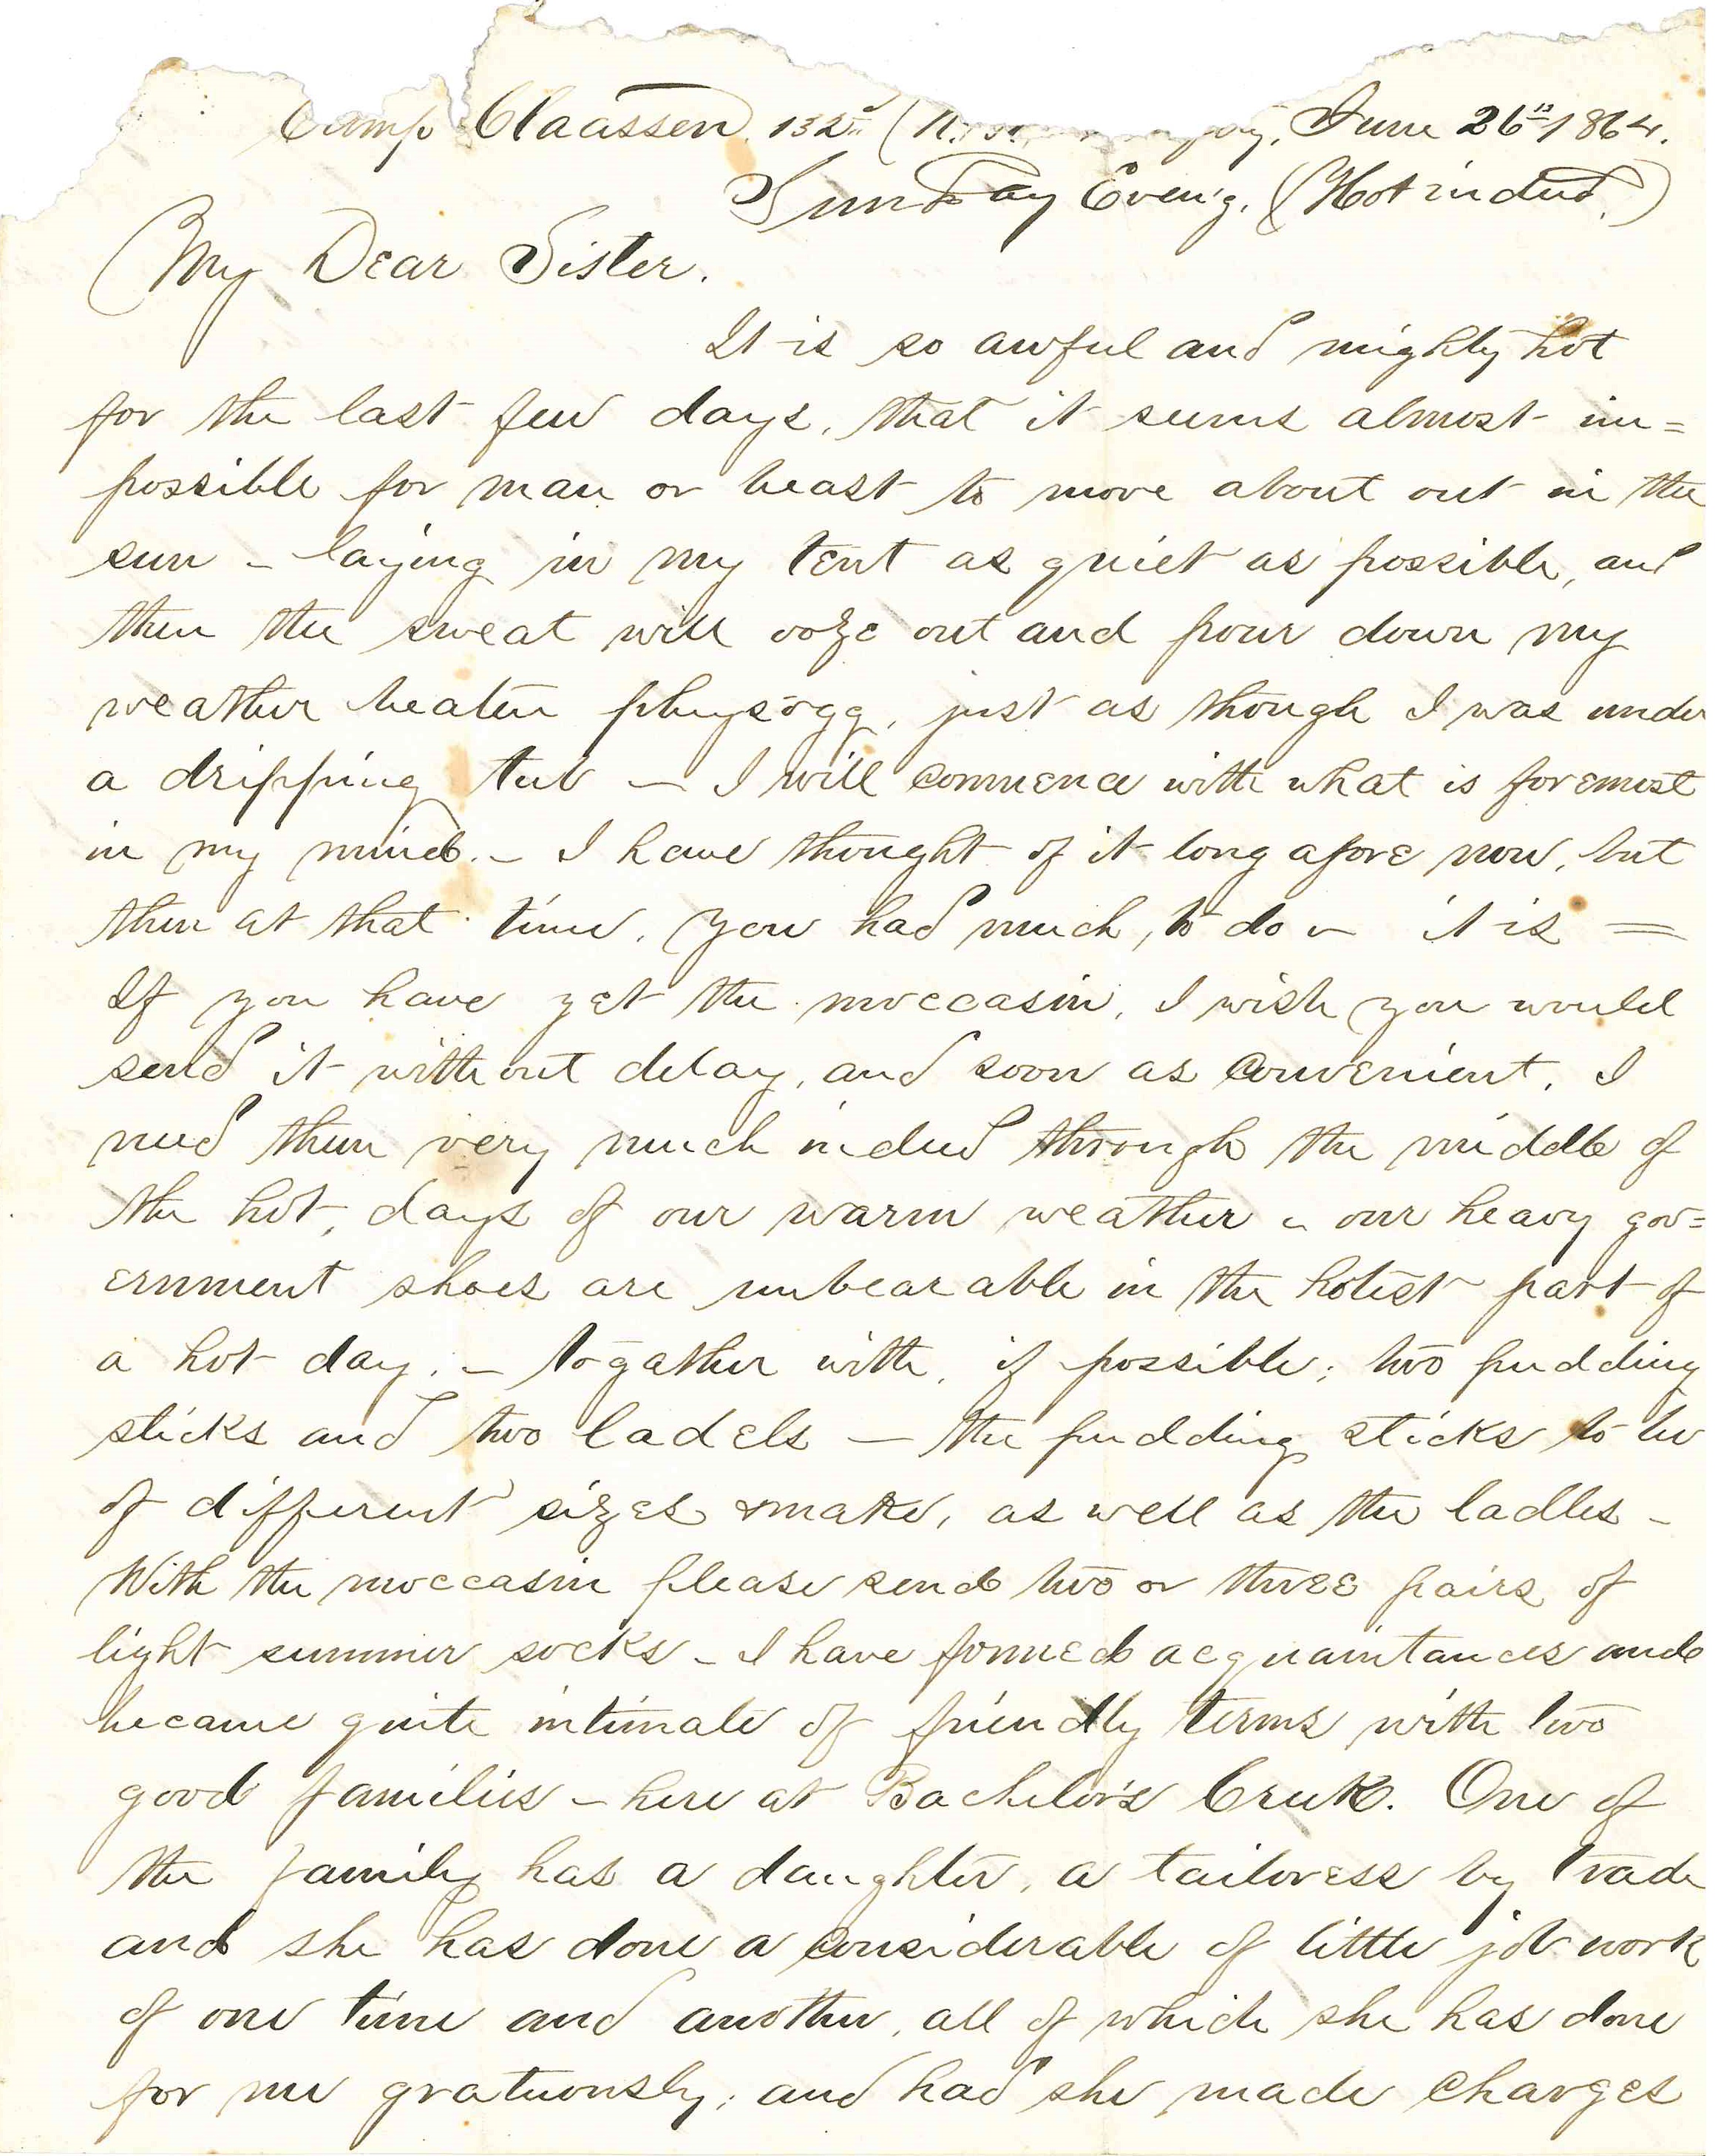 Camp Claassen, 132nd (N.Y. June 26th 1864.
Sunday Even'g. (Hot indeed.)
My Dear Sister.
It is so awful and mighty hot
for the last few days, that it seems almost im=
possible for man or beast to move about out in the
sun – laying in my tent as quiet as possible, and
then the sweat will ooze out and pour down my
weather beaten physogg, just as though I was under
a dripping tub – I will commence with what is foremost
in my mind. – I have thought of it long afore now, but
then at that time, you had much, to do – it is =
If you have yet the moccasin, I wish you would
send it without delay, and soon as convenient. I
need them very much indeed through the middle of
the hot, days of our warm weather – our heavy gov=
ernment shoes are unbearable in the hotest part of
a hot day. – togather with, if possible; two pudding
sticks and two ladels – the pudding sticks to be
of different sizes & make, as well as the ladles –
With the moccasin please send two or three pairs of
light summer socks – I have formed acquaintances and
became quite intimate of friendly terms with two
good families – here at Bachelor's Creek. One of
the family has a daughter, a tailoress by trade
and she has done a considerable of little job work
of one time and another, all of which she has done
for me gratuously; and had she made charges